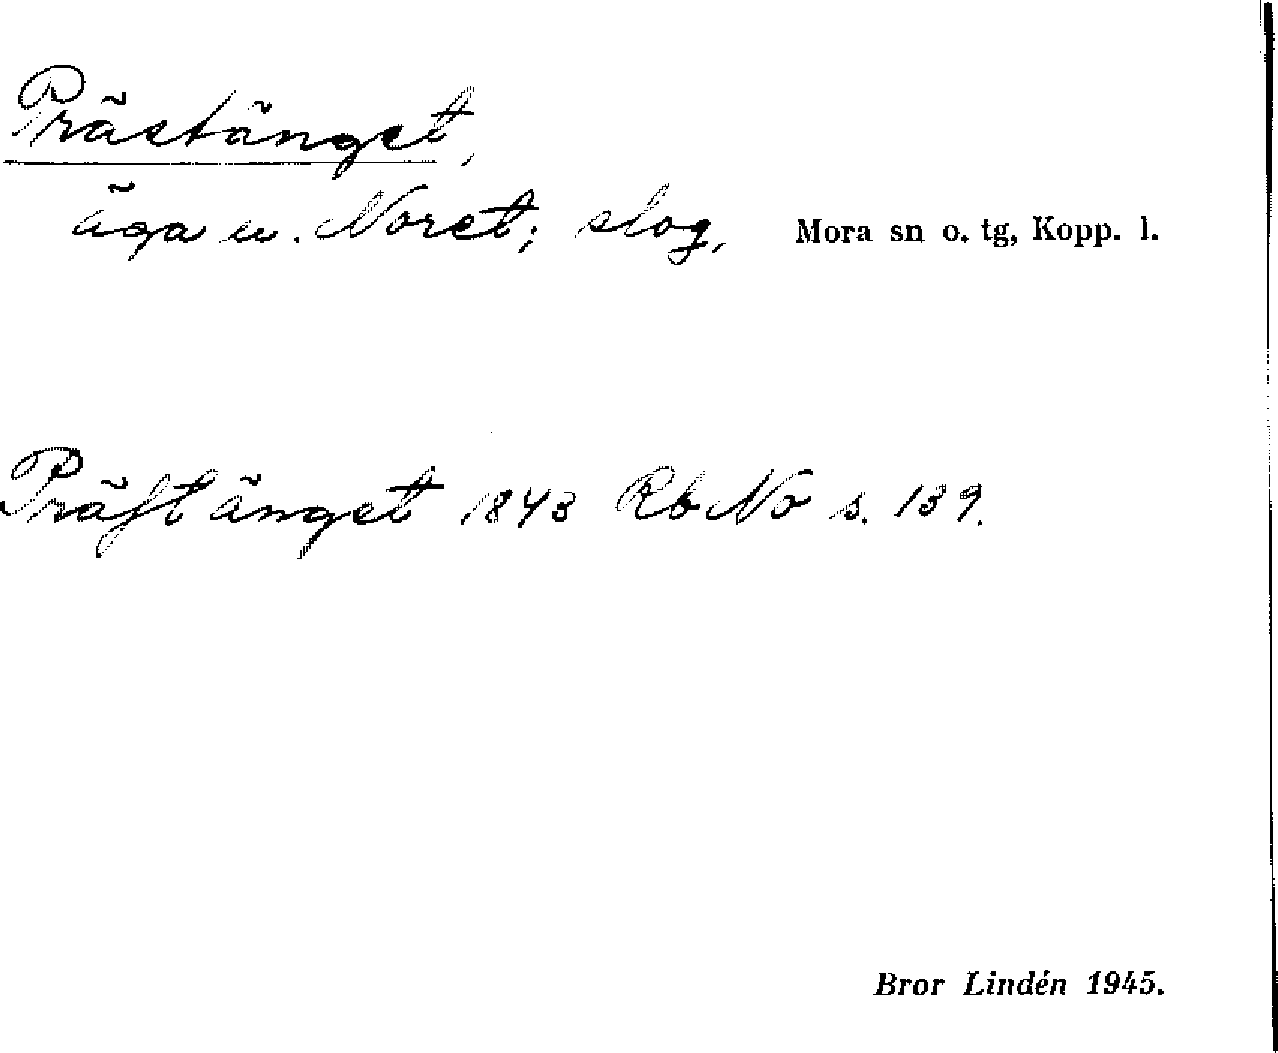 Prästänget,
äga u. Noret; slog, Mora sn o. tg, Kopp. l.
Präſtänget 1843 Rb No s. 139.
Bror Lindén 1945.